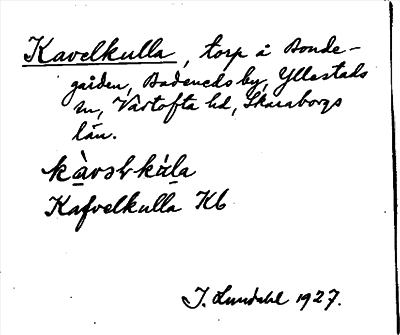 Kavelkulla, torp å Bonde-
gården, Badenedsby, Yllestads
sn, Vartofta hd, Skaraborgs
län.
Kafvelkulla Kb
I. Lundahl 1927.